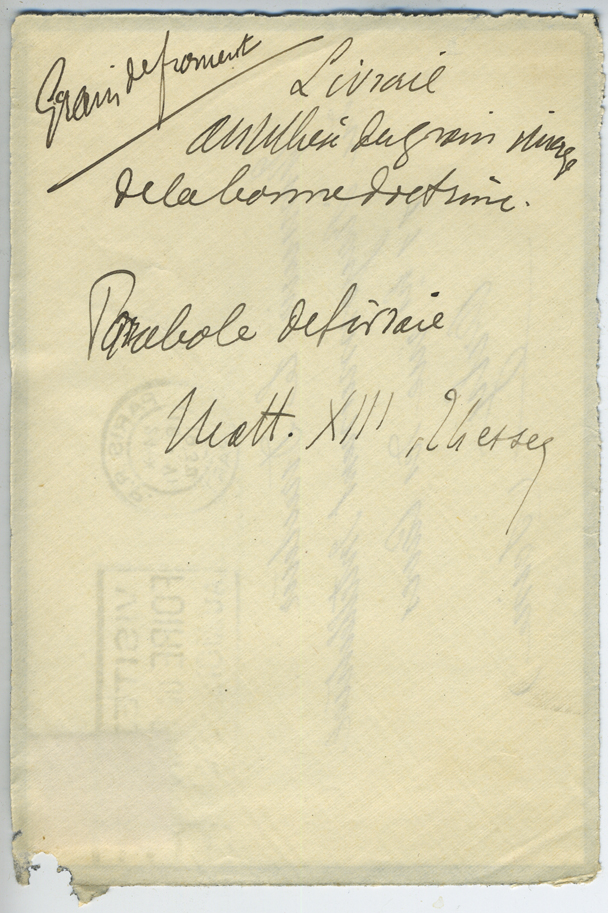 Grain de froment
L'ivraie
au milieu du grain image
de la bonne doctrine.
Parabole de l'ivraie
Matt. XIII